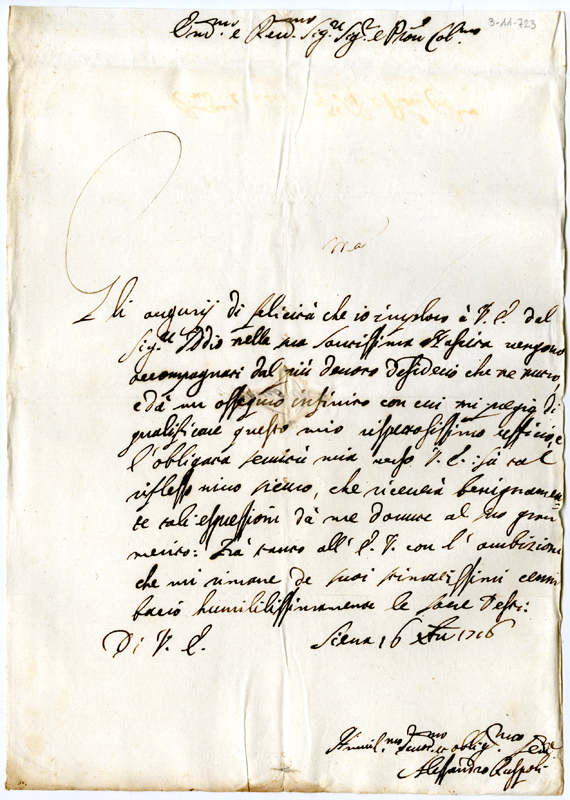 3-11-723
Em.mo e Rev.mo Sig.re Sig.re e Pron Col.mo
ma
Gli augurij di felicità che io imploro à V. E. dal
Sig.re Iddio nella sua Santissima Nascita vengono
accompagnati dal più devoto desiderio che ne nutro,
e dà un ossequio infinito con cui mi pregio di
qualificare questo mio rispettosissimo ufficio, e
l'obligata servitù mia verso V. E.: sù tal
riflesso vivo sicuro, che riceverà benignamen=
te tali espressioni dà me dovute al suo gran
merito: Frà tanto all' E. V. con l' ambizione
che mi rimane de suoi stimatissimi cenni
bacio humilissimamente le sacre Vesti:
Di V. E. Siena 16 Xbre 1716
Humil.mo Devot.mo et oblig.mo Ser.re
Alessandro Ruspoli